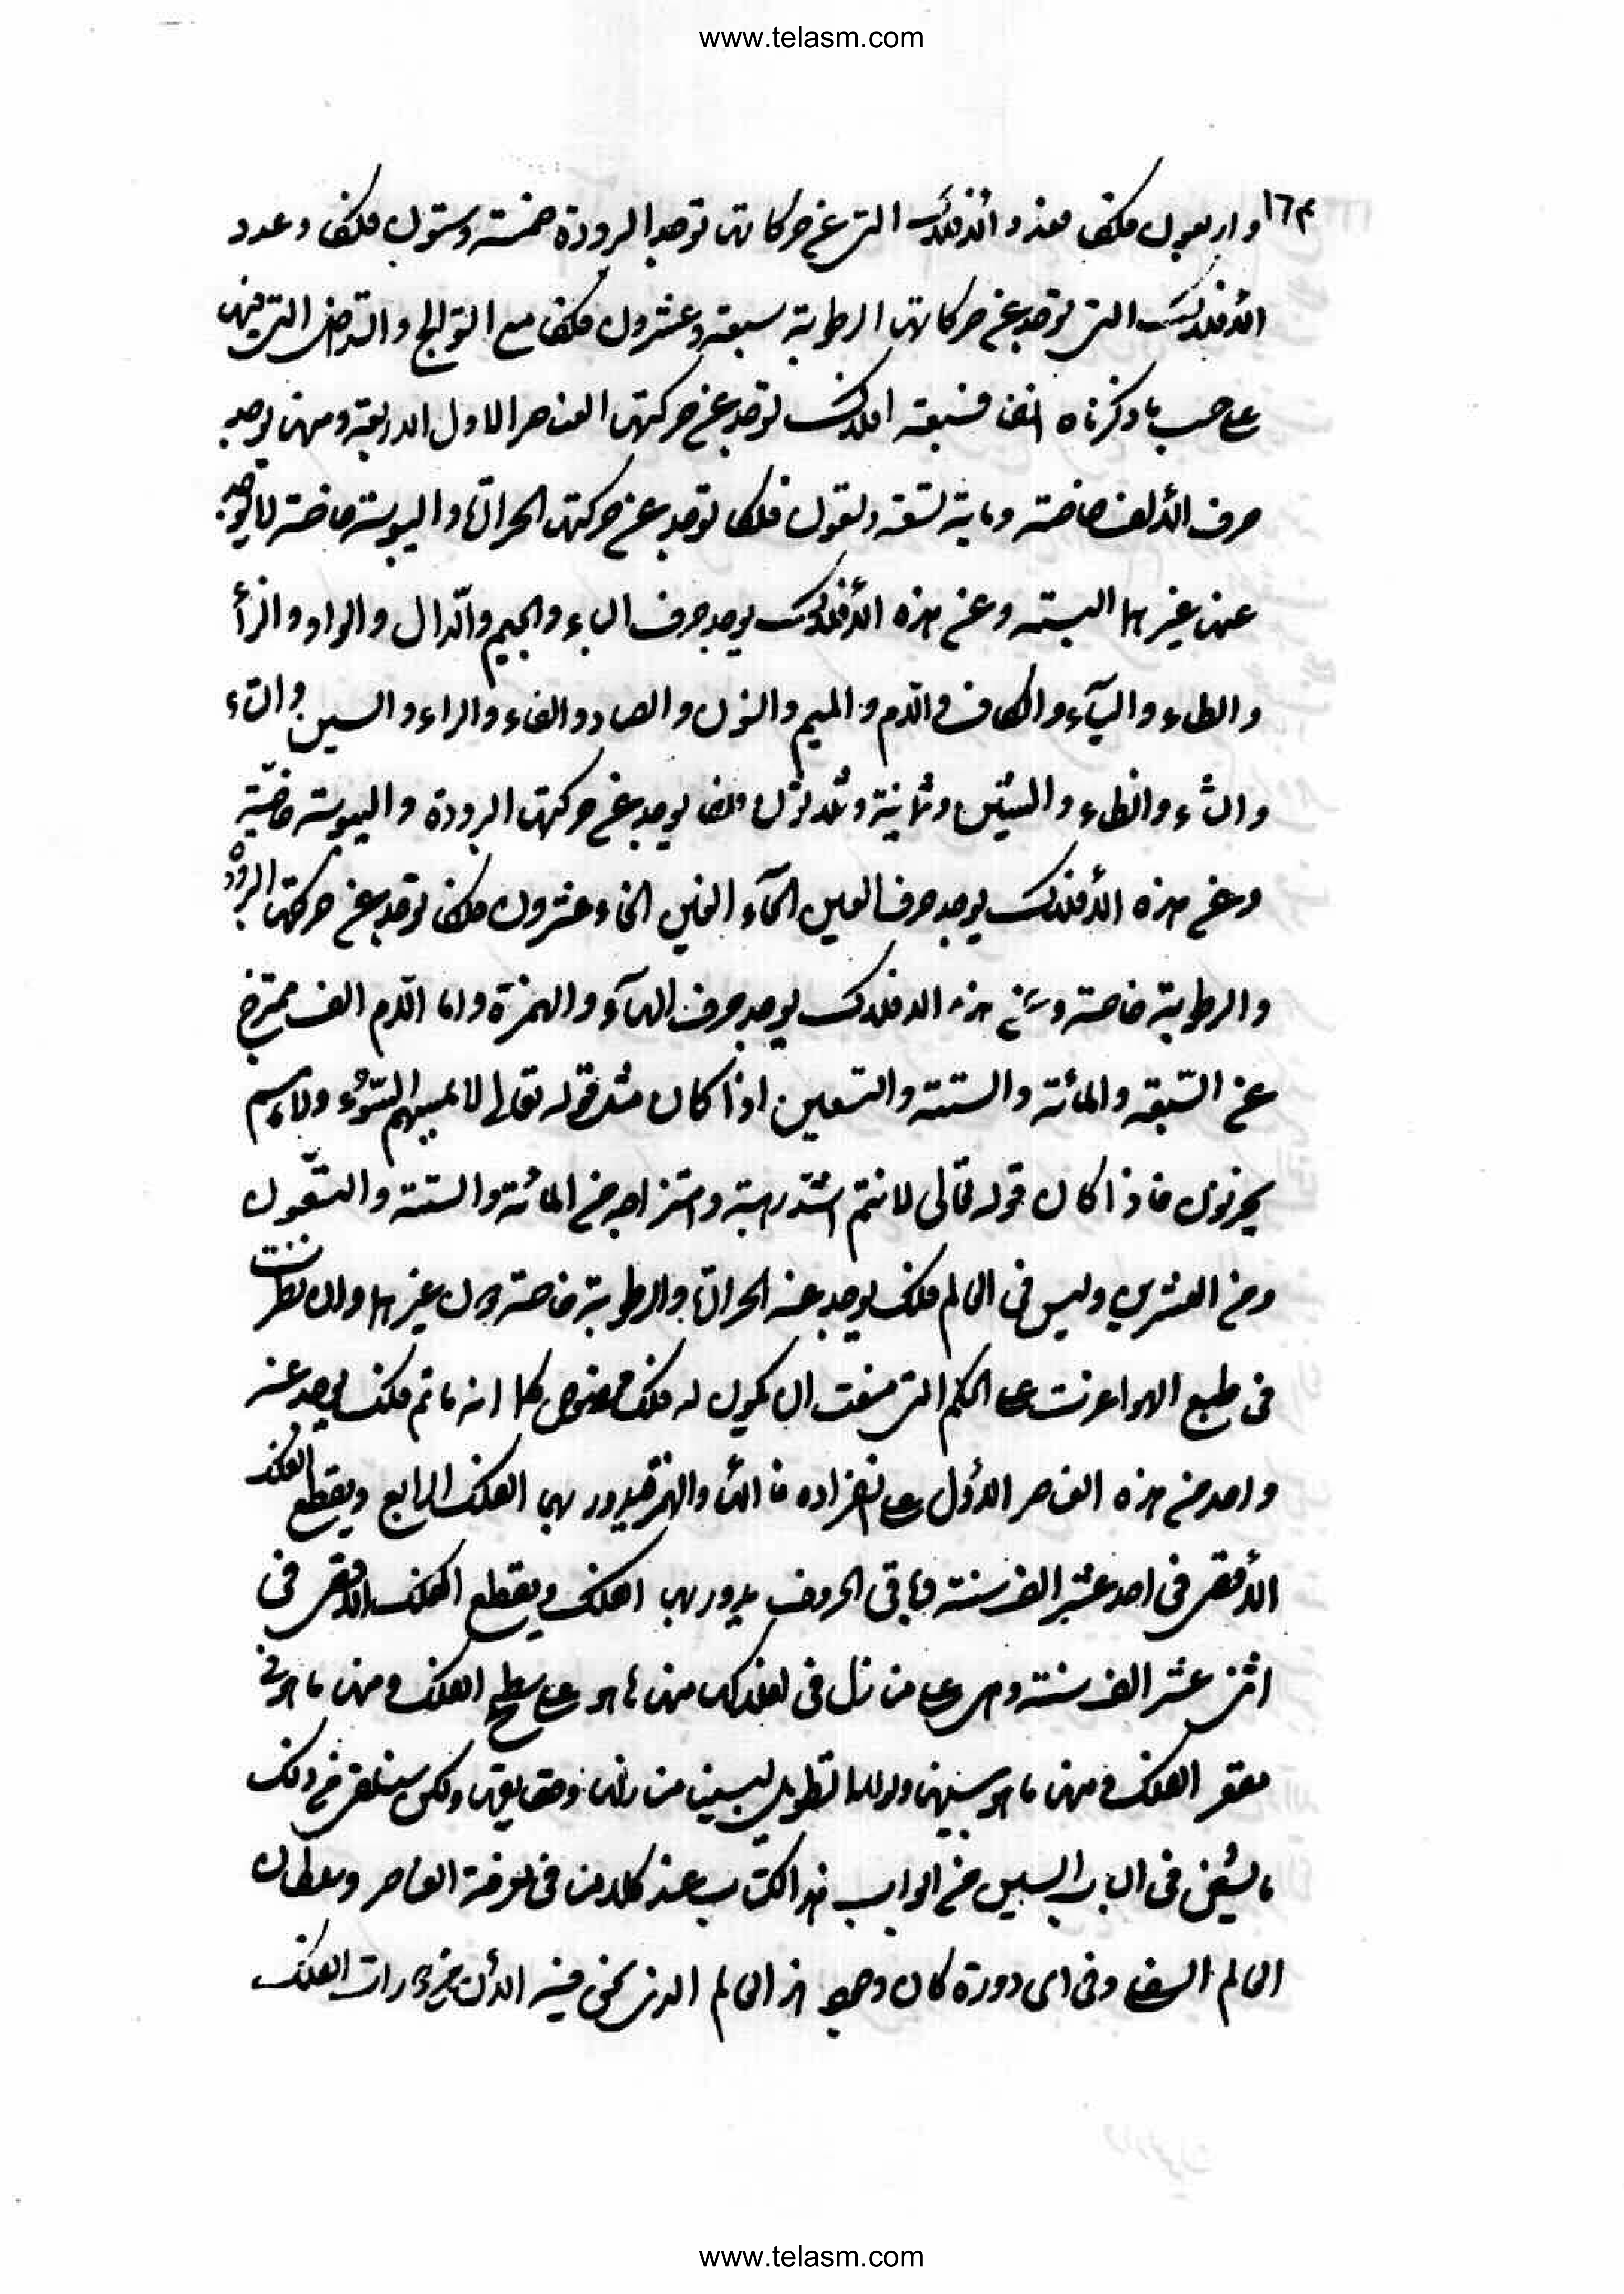 www.telasm.com
واربعون فلكا فهذه الأفلاك التى عن حركاتها توجد البرودة خمسة وستون فلكا وعدد
الأفلاك التى توجد عن حركاتها الرطوبة سبعة وعشرون فلكا مع التوالج والتداخل التى فيها
على حسب ما ذكرناه انفا فسبعة افلاك توجد عن حركتها العناصر الاول الاربعة ومنها يوجد
حرف الألف خاصة وماية تسعة وتسعون فلكا توجد عن حركتها الحرارة واليبوسة خاصة لا يوجد
عنها غيرها البتة وعن هذه الأفلاك يوجد حرف الباء والجيم والدال والواو والزأ
والطاء والياء والكاف واللام والميم والنون والصاد والفاء والراء والسين والتاء
والثاء والظاء والشين وثمانية وثلاثون فلكا يوجد عن حركتها البرودة واليبوسة خاصة
وعن هذه الأفلاك يوجد حرف العين الحاء الغين الخاء وعشرون فلكا توجد عن حركتها البرودة
والرطوبة خاصة وعن هذه الافلاك يوجد حرف الهاء والهمزة واما اللام الف ممتزج
عن السبعة والمائة والستة والتسعين اذا كان مثل قوله تعالى لا يمسهم السوء ولا هم
يحزنون فاذا كان قوله تعالى لانتم اشد رهبة وامتزاجه من المائة والستة والتسعون
ومن العشرين وليس فى العالم فلك يوجد عنه الحرارة والرطوبة خاصة دون غيرها وان نظرت
فى طبع الهوا عرفت على الحكم التى منعت ان يكون له فلك مخصوص كما انه ما ثم فلك يوجد عنه
واحد من هذه العناصر الأول على انفراده فالهاء والهمزة يدور بها الفلك الرابع ويقطع الفلك
الأقصى فى احد عشر الف سنة وباقى الحروف يدور بها الفلك ويقطع الفلك الاقصى فى
اثنى عشر الف سنة وهى على منازل فى افلاكها منها ما هو على سطح الفلك ومنها ما هو فى
مقعر الفلك ومنها ما هو بينها ولولا التطويل لبينا منازلها وحقايقها ولكن سنلقى من ذلك
ما يشفى فى الباب الستين من ابواب هذا الكتاب عند كلامنا فى معرفة العناصر وسلطان
العالم السفلى وفى اى دورة كان وجود هذا العالم الذى نحن فيه الأن من دورات الفلك
www.telasm.com